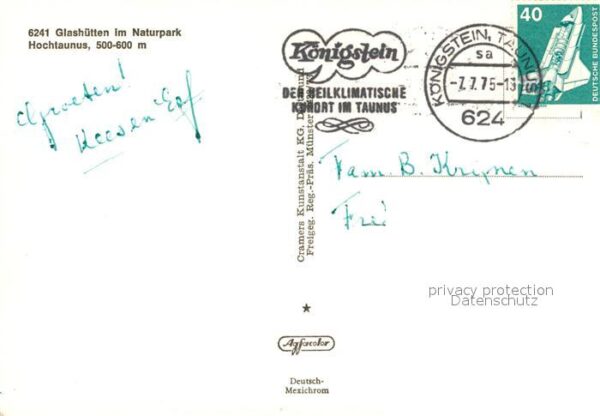 6241 Glashütten im Naturpark
Hochtaunus, 500-600 m
Groeten!
Kees en
Königstein
DER HEILKLIMATISCHE
KURORT IM TAUNUS
KÖNIGSTEIN, TAUNUS
sa
-7.7.75-13
624
40
DEUTSCHE BUNDESPOST
Cramers Kunstanstalt KG, Dortmund
Freigeg. Reg.-Präs. Münster
Fam. B.
privacy protection
Datenschutz
Agfacolor
Deutsch-
Mexichrom